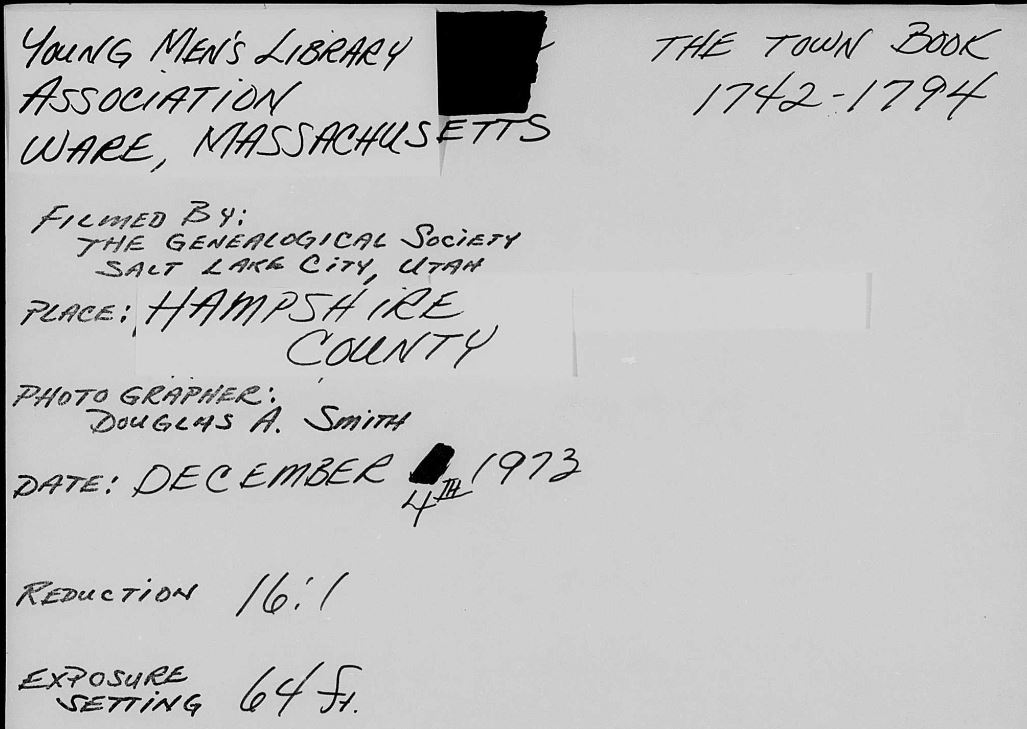 YOUNG MEN'S LIBRARY
ASSOCIATION
WARE, MASSACHUSETTS
THE TOWN BOOK
1742-1794
FILMED BY:
THE GENEALOGICAL SOCIETY
SALT LAKE CITY, UTAH
PLACE: HAMPSHIRE
COUNTY
PHOTOGRAPHER:
DOUGLAS A. SMITH
DATE: DECEMBER 4TH 1973
REDUCTION 16:1
EXPOSURE
SETTING 64 ft.